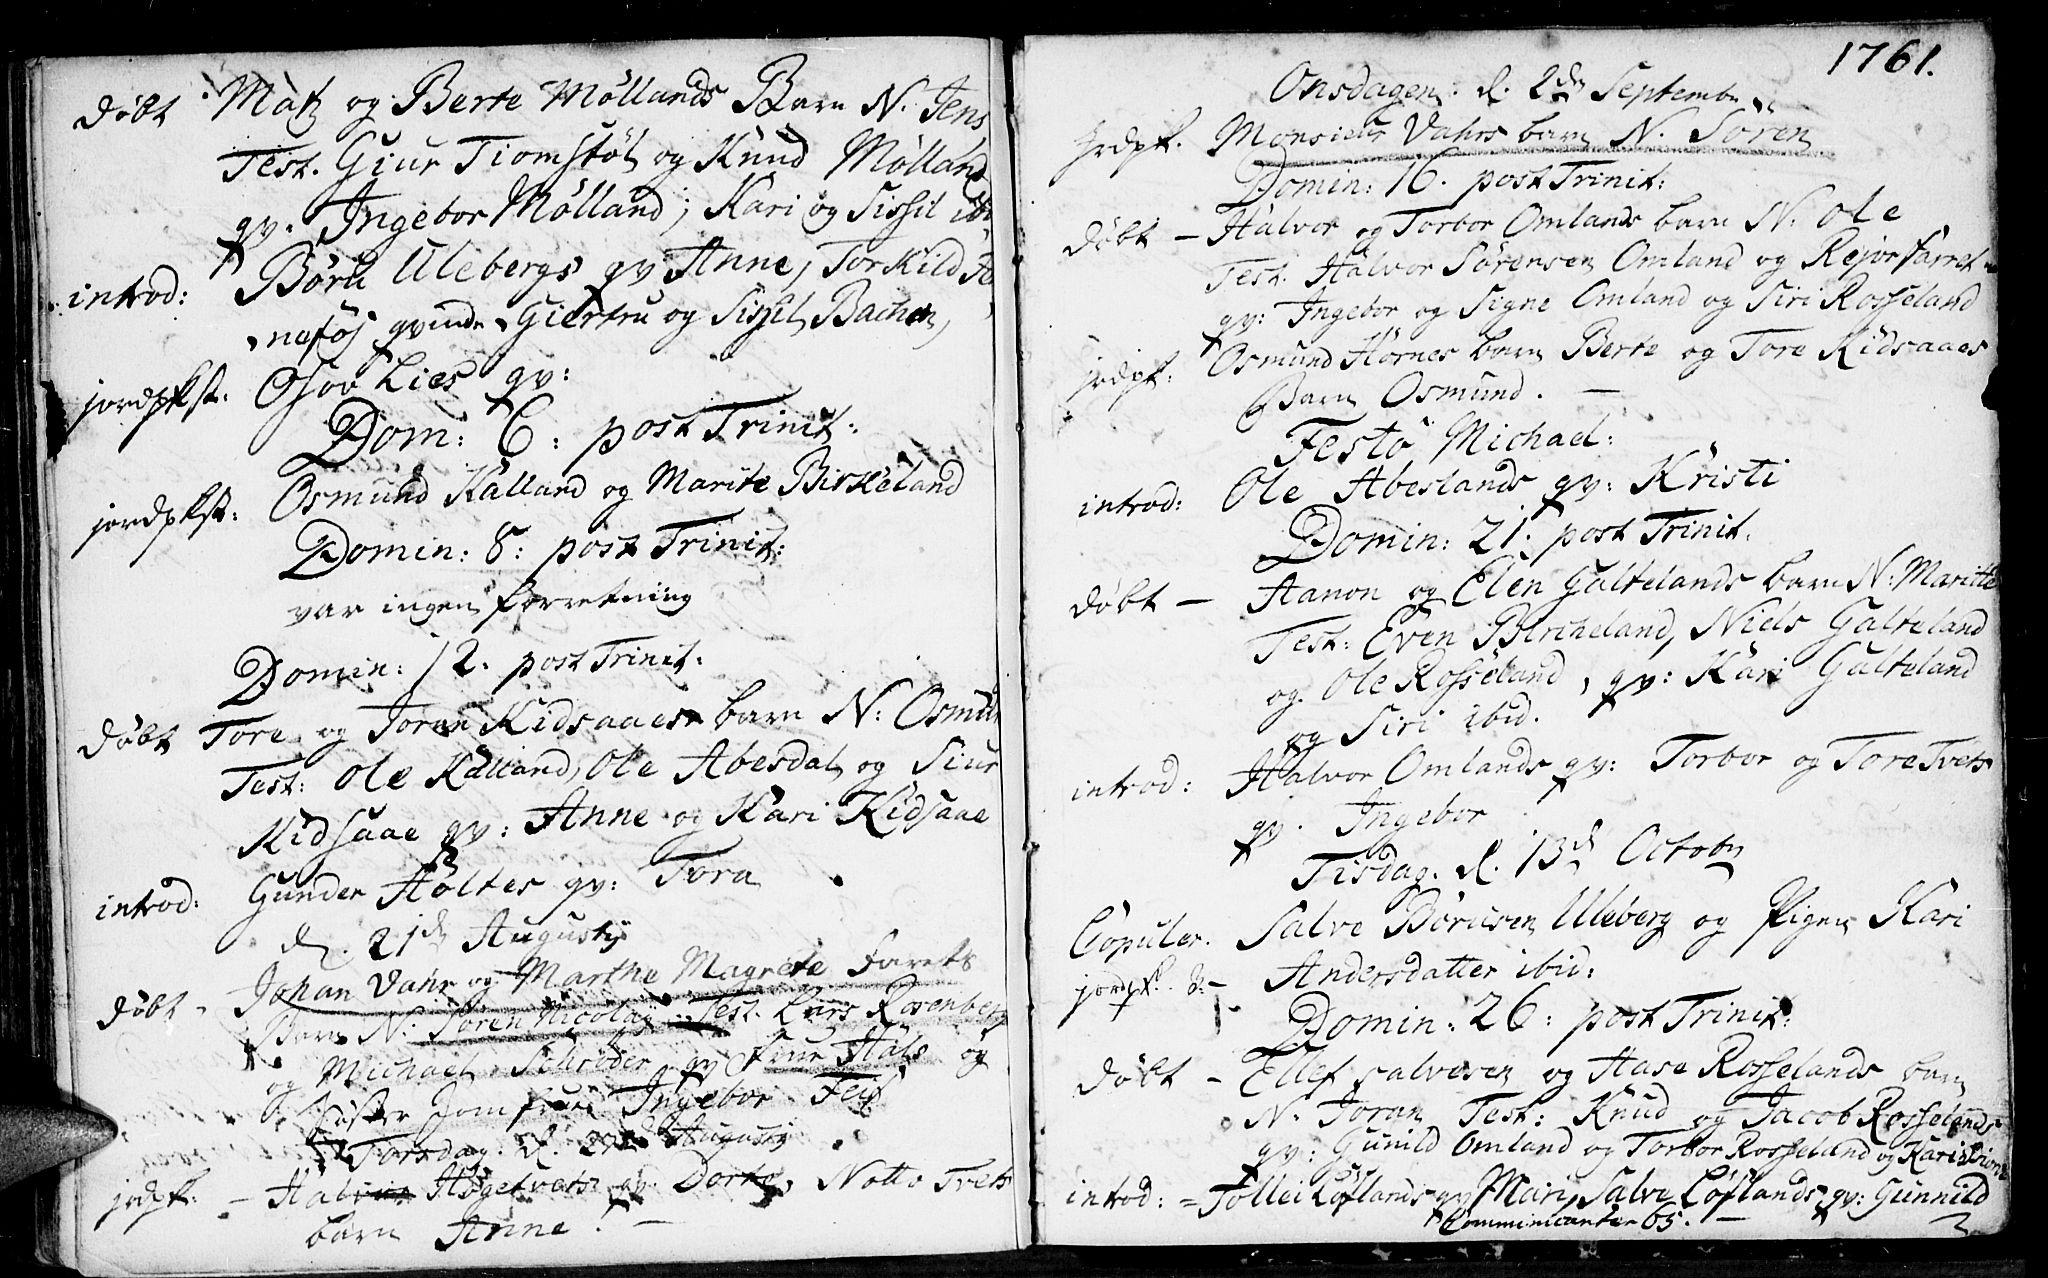 døbt Matz og Berte Møllands Barn N. Jens
Test. Giur Tiomstøl og Knud Mølland
qv. Ingebor Mølland; Kari og Sissil ibi
introd: Børu Ulebergs qv Anne, Torkild
nesøs qvinde, Giertru og Sissil Bachen,
jordpkst: Osov Lies qv:
Dom: 6: post Trinit:
jordpkst: Osmund Kalland og Marite Birkeland
Domin: 8: post Trinit:
var ingen forretning
Domin: 12. post Trinit:
døbt Tore og Joran Kidsaaes barn N: Osmund
Test: Ole Kalland, Ole Abesdal og Siur
Kidsaae qv: Anne og Kari Kidsaae
introd: Gunder Holtes qv: Tora
d. 21de Augustij
døbt - Johan Vahr og Marthe Magrete Farets
Barn N: Søren Nicolay. Test. Lars Rosenberg
og Michael Schrøder qv Siur Hals og
Jomfrue Ingebor Feif
Torsdag. d. Augustij
jrdpf: - Halvor Høgetvets qv: Dorte, Notto Tvets
barn Anne. -
1761.
Onsdagen: d. 2de Septembr
jrdpf. Monsieur Vahrs barn N. Søren
Domin: 16. post Trinit:
døbt - Halvor og Torbor Omlands barn N: Ole
Test. Halvor Sørensen Omland og Rejor farret
qv: Ingebor og Signe Omland og Siri Rosseland
jrdpf: Osmund Hornes barn Berte og Tore Kidsaaes
Barn Osmund. -
Festo Michael:
introd: Ole Abeslands qv: Kristi
Domin: 21: post Trinit.
døbt - Hanon og Elen Galtelands barn N: Maritte
Test: Even Bircheland, Niels Galteland
og Ole Rosseland, qv: Kari Galteland
og Siri ibid.
introd: Halvor Omlands qv: Torbor og Tore Tvets
qv. Ingebor
Tisdag. d. 13de Octobr
Copuler. Salve Børusen Uleberg og Pigen Kari
jordpf. Andersdatter ibid:
Domin: 26: post Trinit:
døbt - Ellef Salvesen og Aase Rosselands barn
N. Joran Test: Knud og Jacob Rosselands
qv: Gunild Omland og Torbor Rosseland og Kari
introd: = Tollei Løflands qv Mari, Salve Løflands qv: Gunnild
Comminicanter 65. -